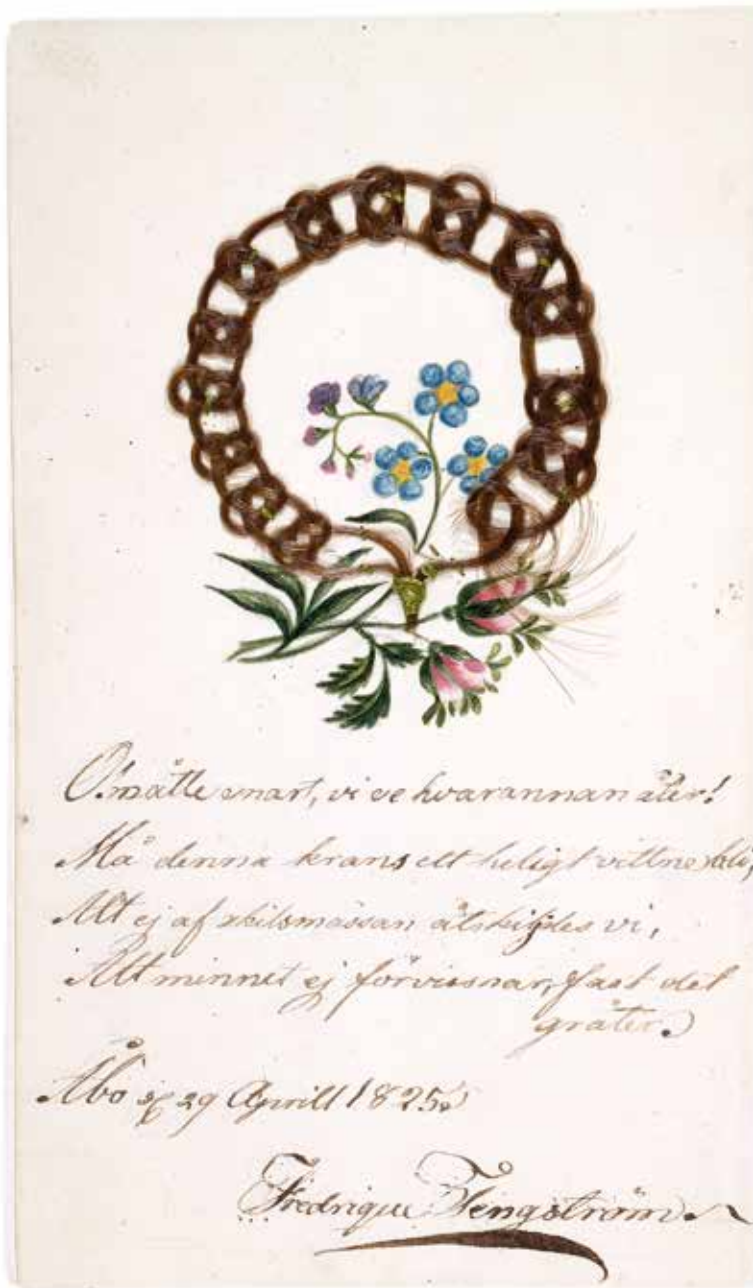 O! måtte snart, vi se hvarannan åter!
Må denna krans ett heligt vittne bli,
Att ej af skilsmässan åtskiljdes vi,
Att minnet ej förvissnar, fast det
gråter.
Åbo 29 Aprill 1825.
Fredrique Tengström.